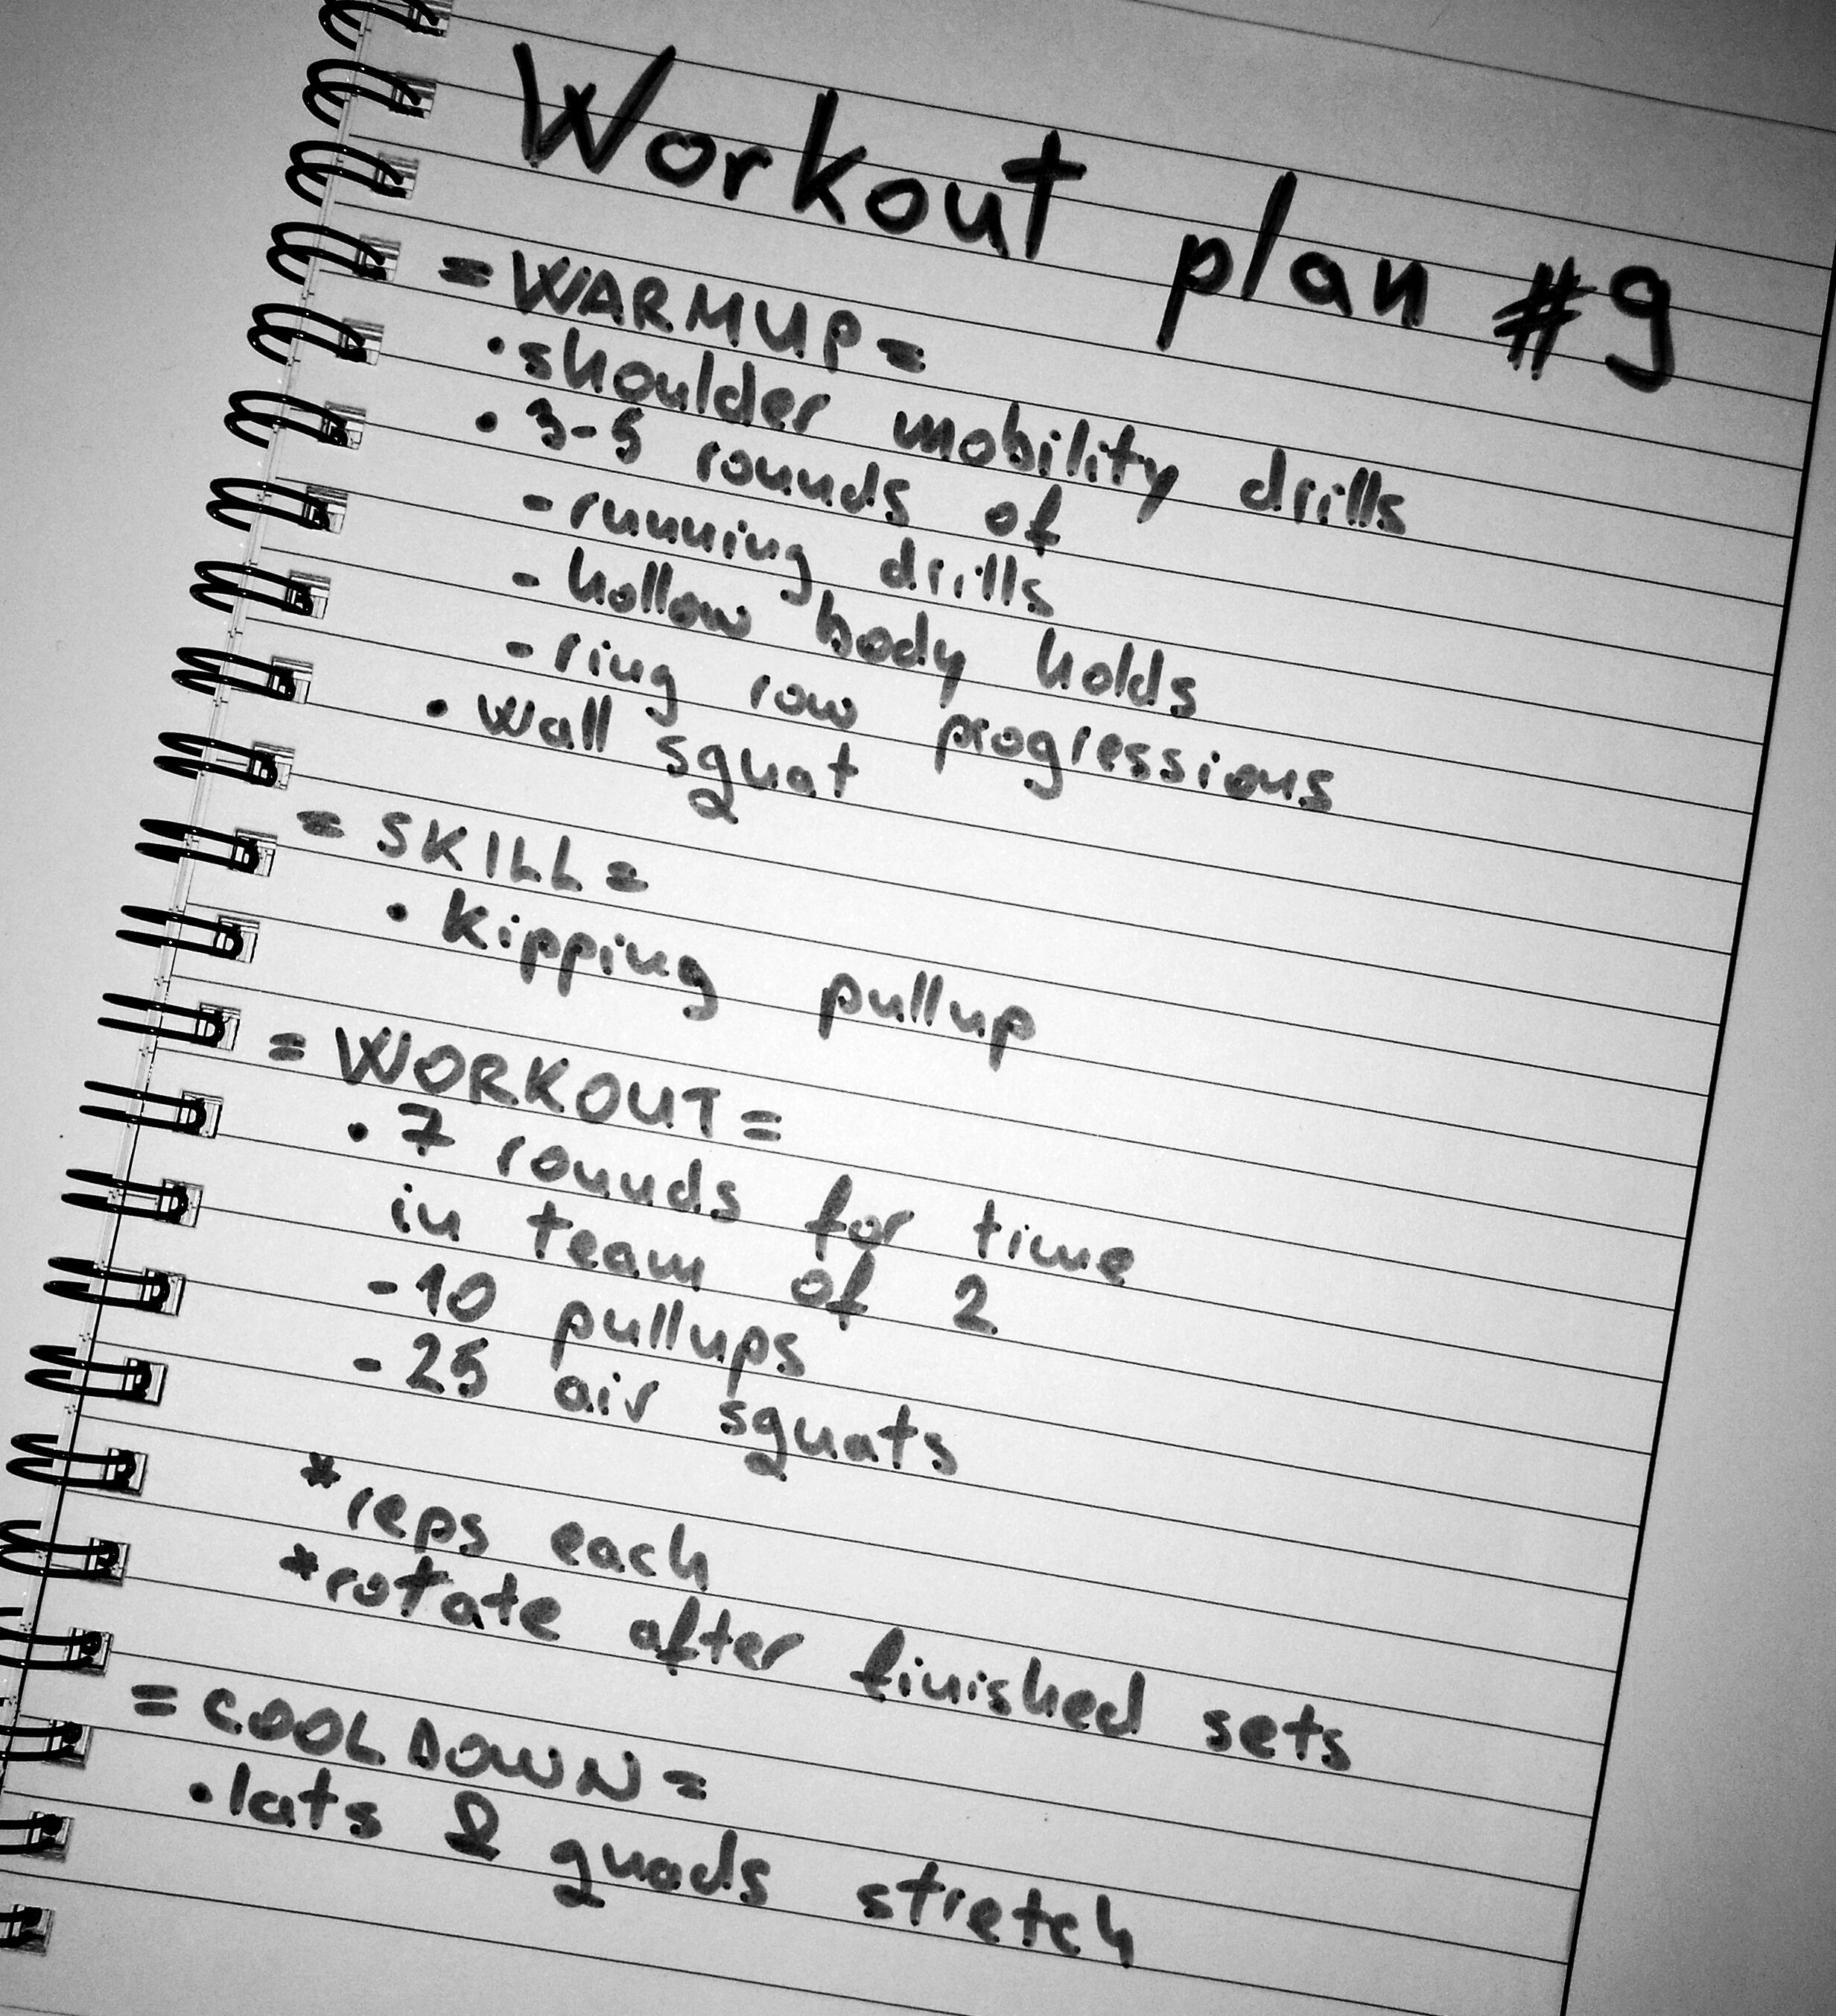 Workout plan #9
=WARMUP=
•shoulder mobility drills
•3-5 rounds of
-running drills
-hollow body holds
-ring row progressions
•wall squat
=SKILL=
•kipping pullup
=WORKOUT=
•7 rounds for time
in team of 2
-10 pullups
-25 air squats
*reps each
*rotate after finished sets
=COOL DOWN=
•lats & quads stretch